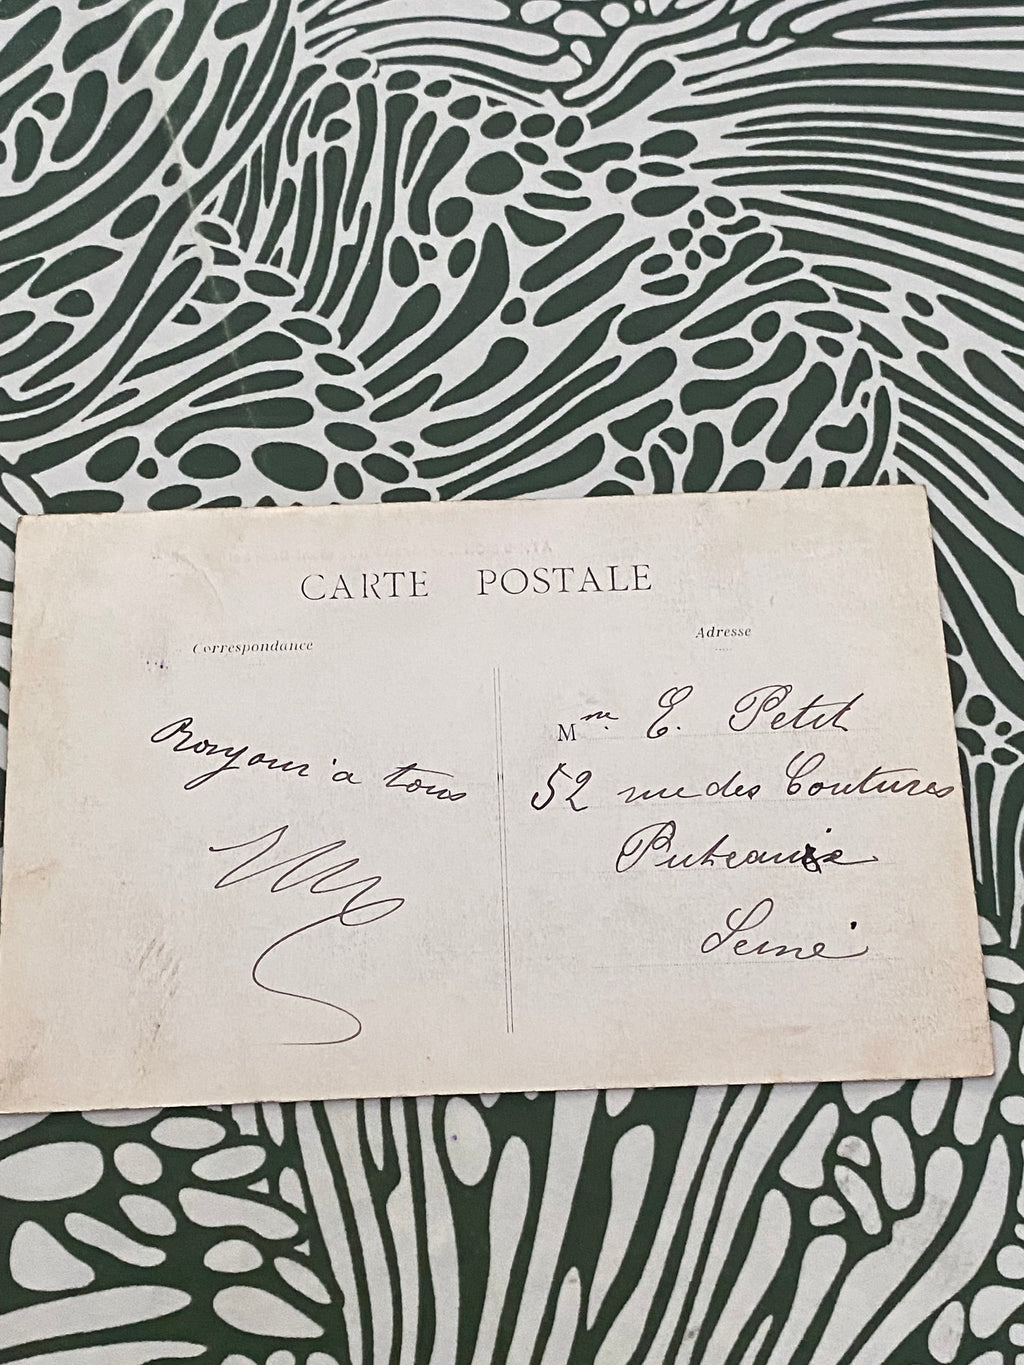 CARTE POSTALE
Correspondance
Bonjour à tous
Adresse
Mme E. Petit
52 rue des Coutures
Puteaux
Seine